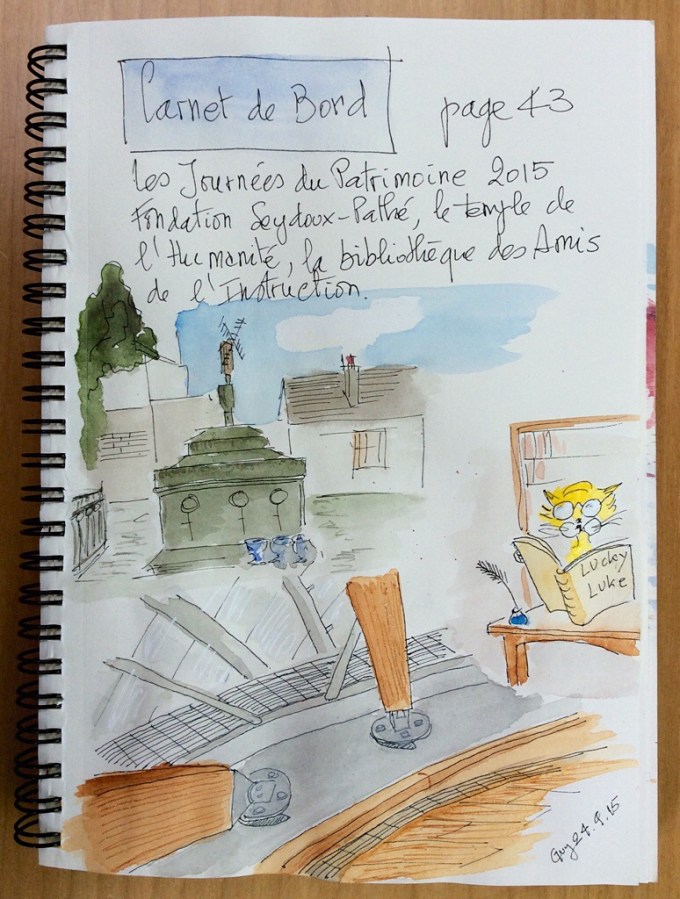 Carnet de Bord
page 43
Les Journées du Patrimoine 2015
Fondation Seydoux-Pathé, le temple de
l'Humanité, la bibliothèque des Amis
de l'Instruction.
Lucky
Luke
Guy 24.9.15